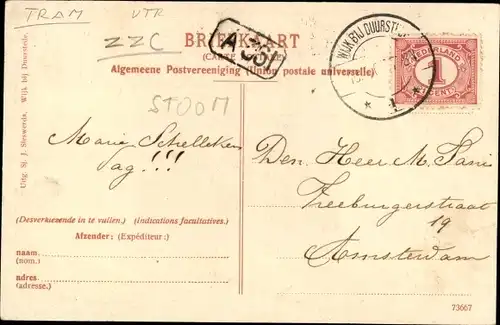 TRAM UTR
ZZC
BRIEFKAART
(CARTE
A 351
WIJK BIJ DUURST
1
NEDERLAND
1
CENT
Algemeene Postvereeniging (Union postale universelle)
STOOM
Uitg. Sj. J. Steswerda, Wijk bij Duurstede.
Marie Schelleken
Dag!!!
Den. Heer M. Sani
Vreeburgerstraat
19
Amsterdam
(Desverkiezende in te vullen.) (Indications facultatives.)
Afzender: (Expéditeur:)
naam:
(nom.)
adres:
(adresse.)
73667